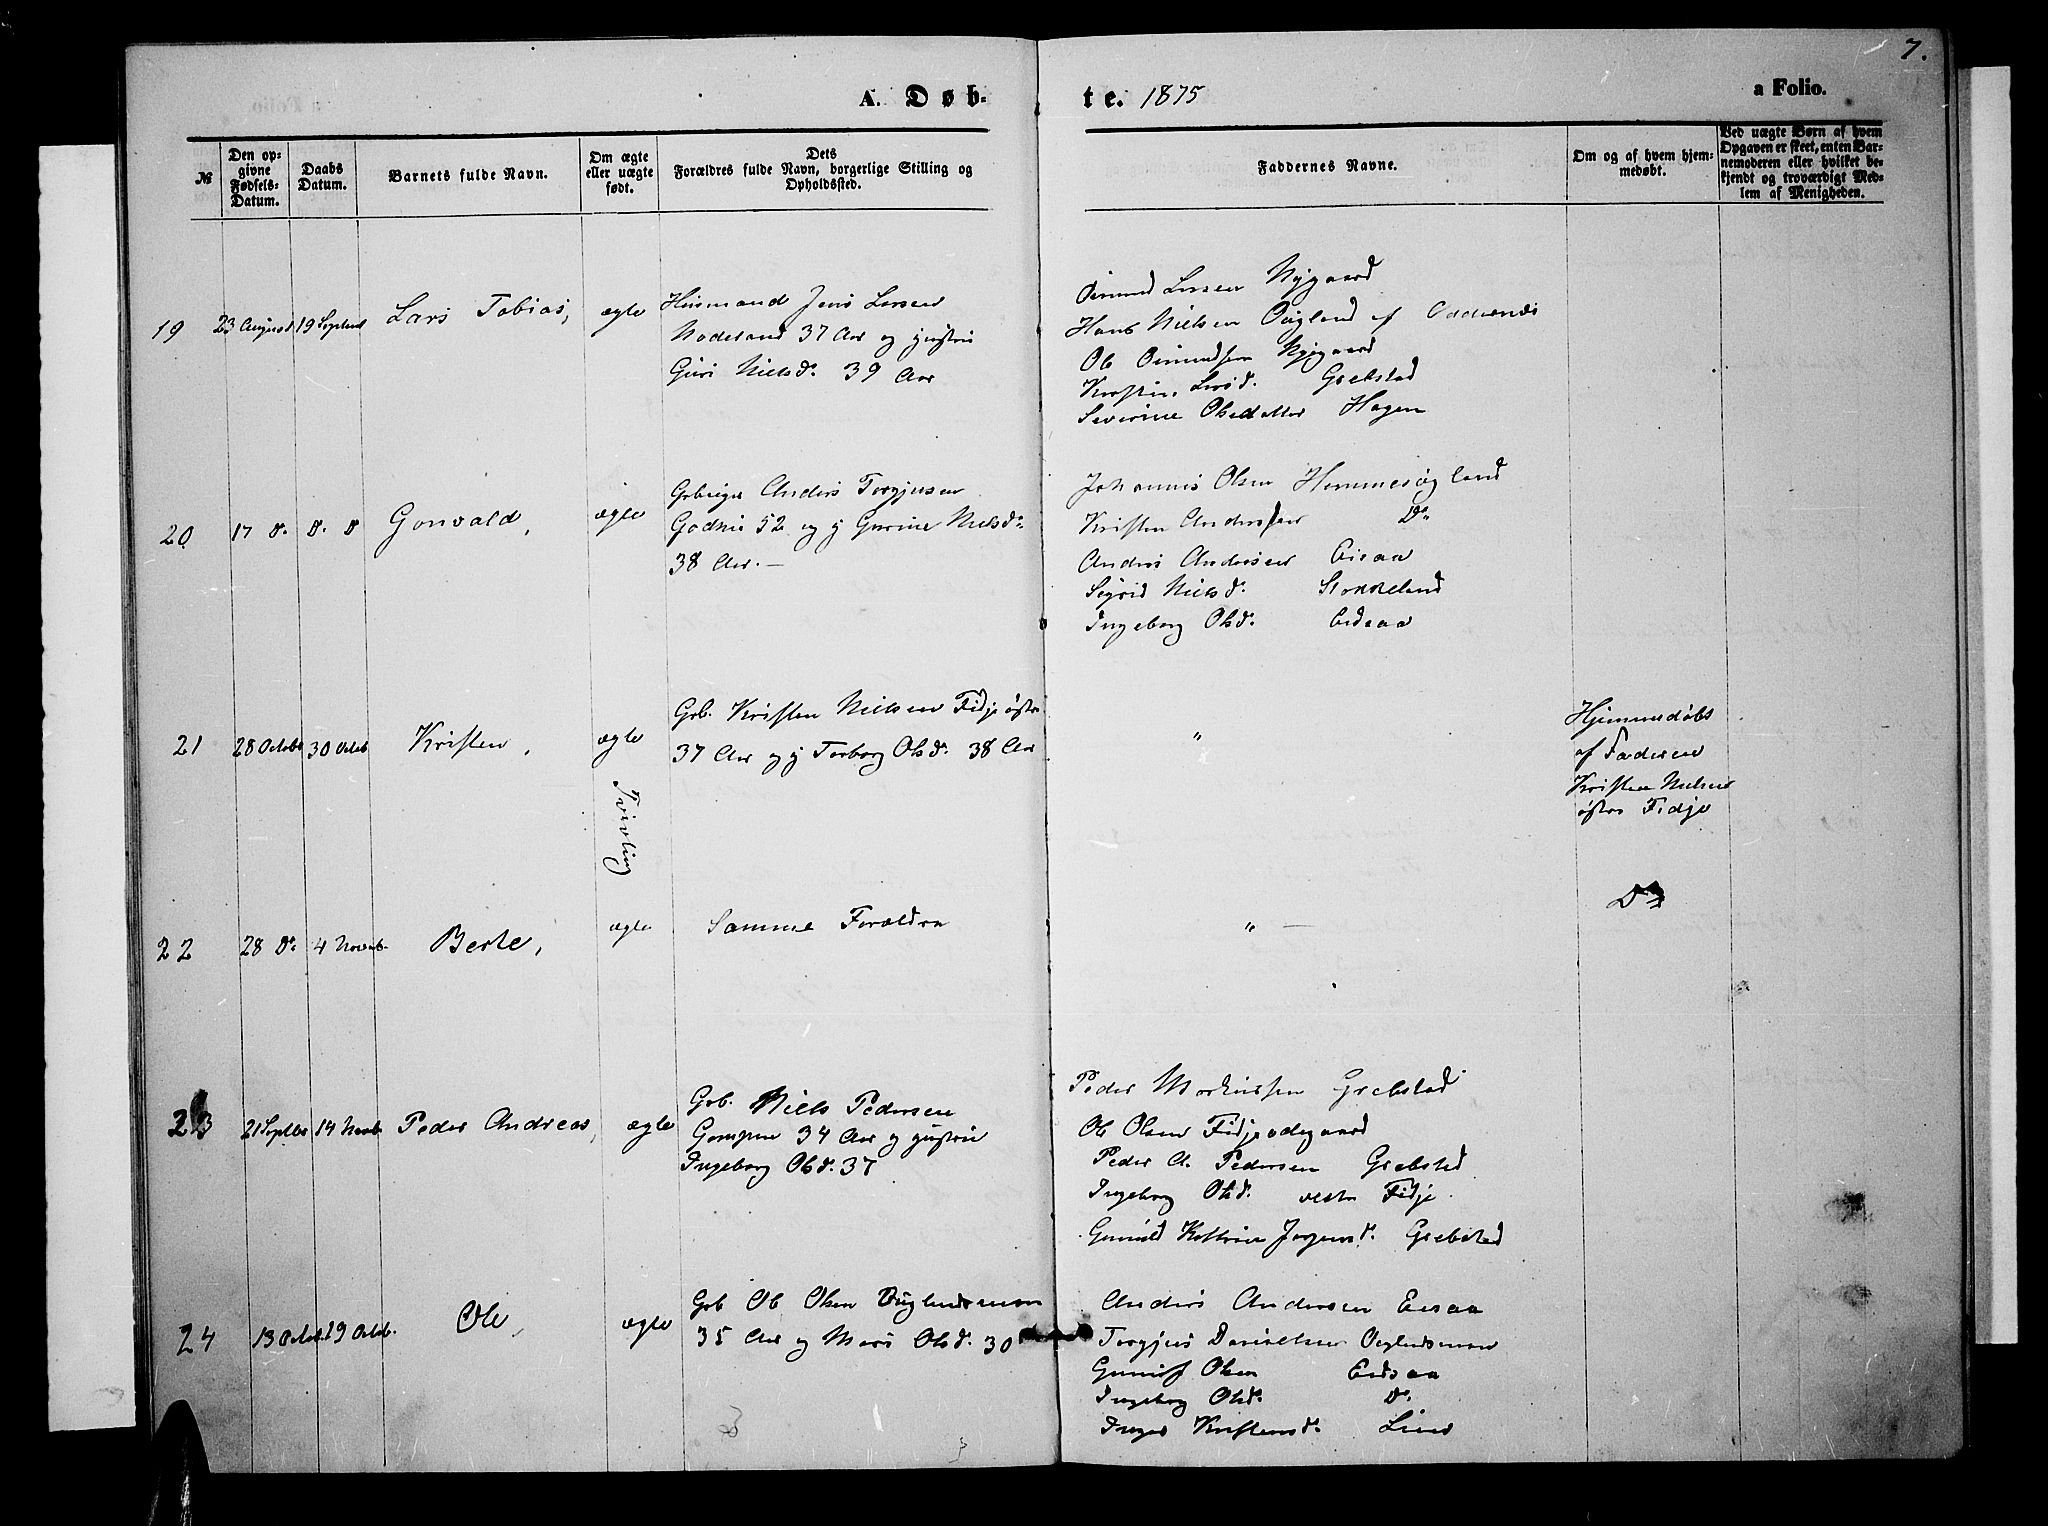 7.
A. Døb-
te. 1875
a Folio.
№
Den op-
givne
Fødsels-
Datum.
Daabs
Datum.
Barnets fulde Navn.
Om ægte
eller uægte
født.
Dets
Forældres fulde Navn, borgerlige Stilling og
Opholdssted.
Faddernes Navne.
Om og af hvem hjem-
medøbt.
Ved uægte Børn af hvem
Opgaven er skeet, enten Bar-
nemoderen eller hvilket be-
kjendt og troværdigt Med-
lem af Menigheden.
19
23 August
19 Septemb
Lars Tobias,
ægte
Huusmand Jens Larsen
37 Aar og hustru
Guri Nielsd. 39 Aar
Omund Larsen Nygaard
Hans Nielsen Øigland af Oddernes
Ole Omundsen Nygaard
Kirsten Larsd. Grebstad
Severine Olsdatter Hagen
20
17 D.
D. D
Gonvald,
ægte
Grbruger Anders Torgjusen
52 og h Gurine Nielsd.
38 Aar. —
Johannes Olsen
Kristen Andersen Do.
Anders Andersen Eisaa
Sigrid Nielsd. Stokkeland
Ingeborg Olsd. Eidsaa
21
28 Octobr
30 Octob
Kristen,
ægte
Tvilling
Grb. Kristen Nielsen Fidje østre
37 Aar og h Torborg Olsd. 38 Aar
"
Hjemmedøbt
af Faderen
Kristen Nielsen
østre Fidje
22
28 Do
4 Novemb.
Berte,
ægte
Samme Forældre
" —
Do
23
21 Septbr
14 Novb
Peder Andreas,
ægte
Grb. Niels Pedersen
34 Aar og hustru
Ingeborg Olsd. 37
Peder Grebstad
Ole Olsen Fidjeødegaard
Peder A. Pedersen Grebstad
Ingeborg Olsd. vestre Fidje
Gunuld Kathrine Jørgensd. Grebstad
24
13 Octob
19 Octob.
Ole,
ægte
Grb Ole Olsen Øiglandsmoen
35 Aar og Mari Olsd. 30
Anders Andersen Eisaa
Torgjus Danielsen Øiglandsmoen
Olsen Eidsaa
Ingeborg Olsd. Do.
Inger Kristensd. Lien